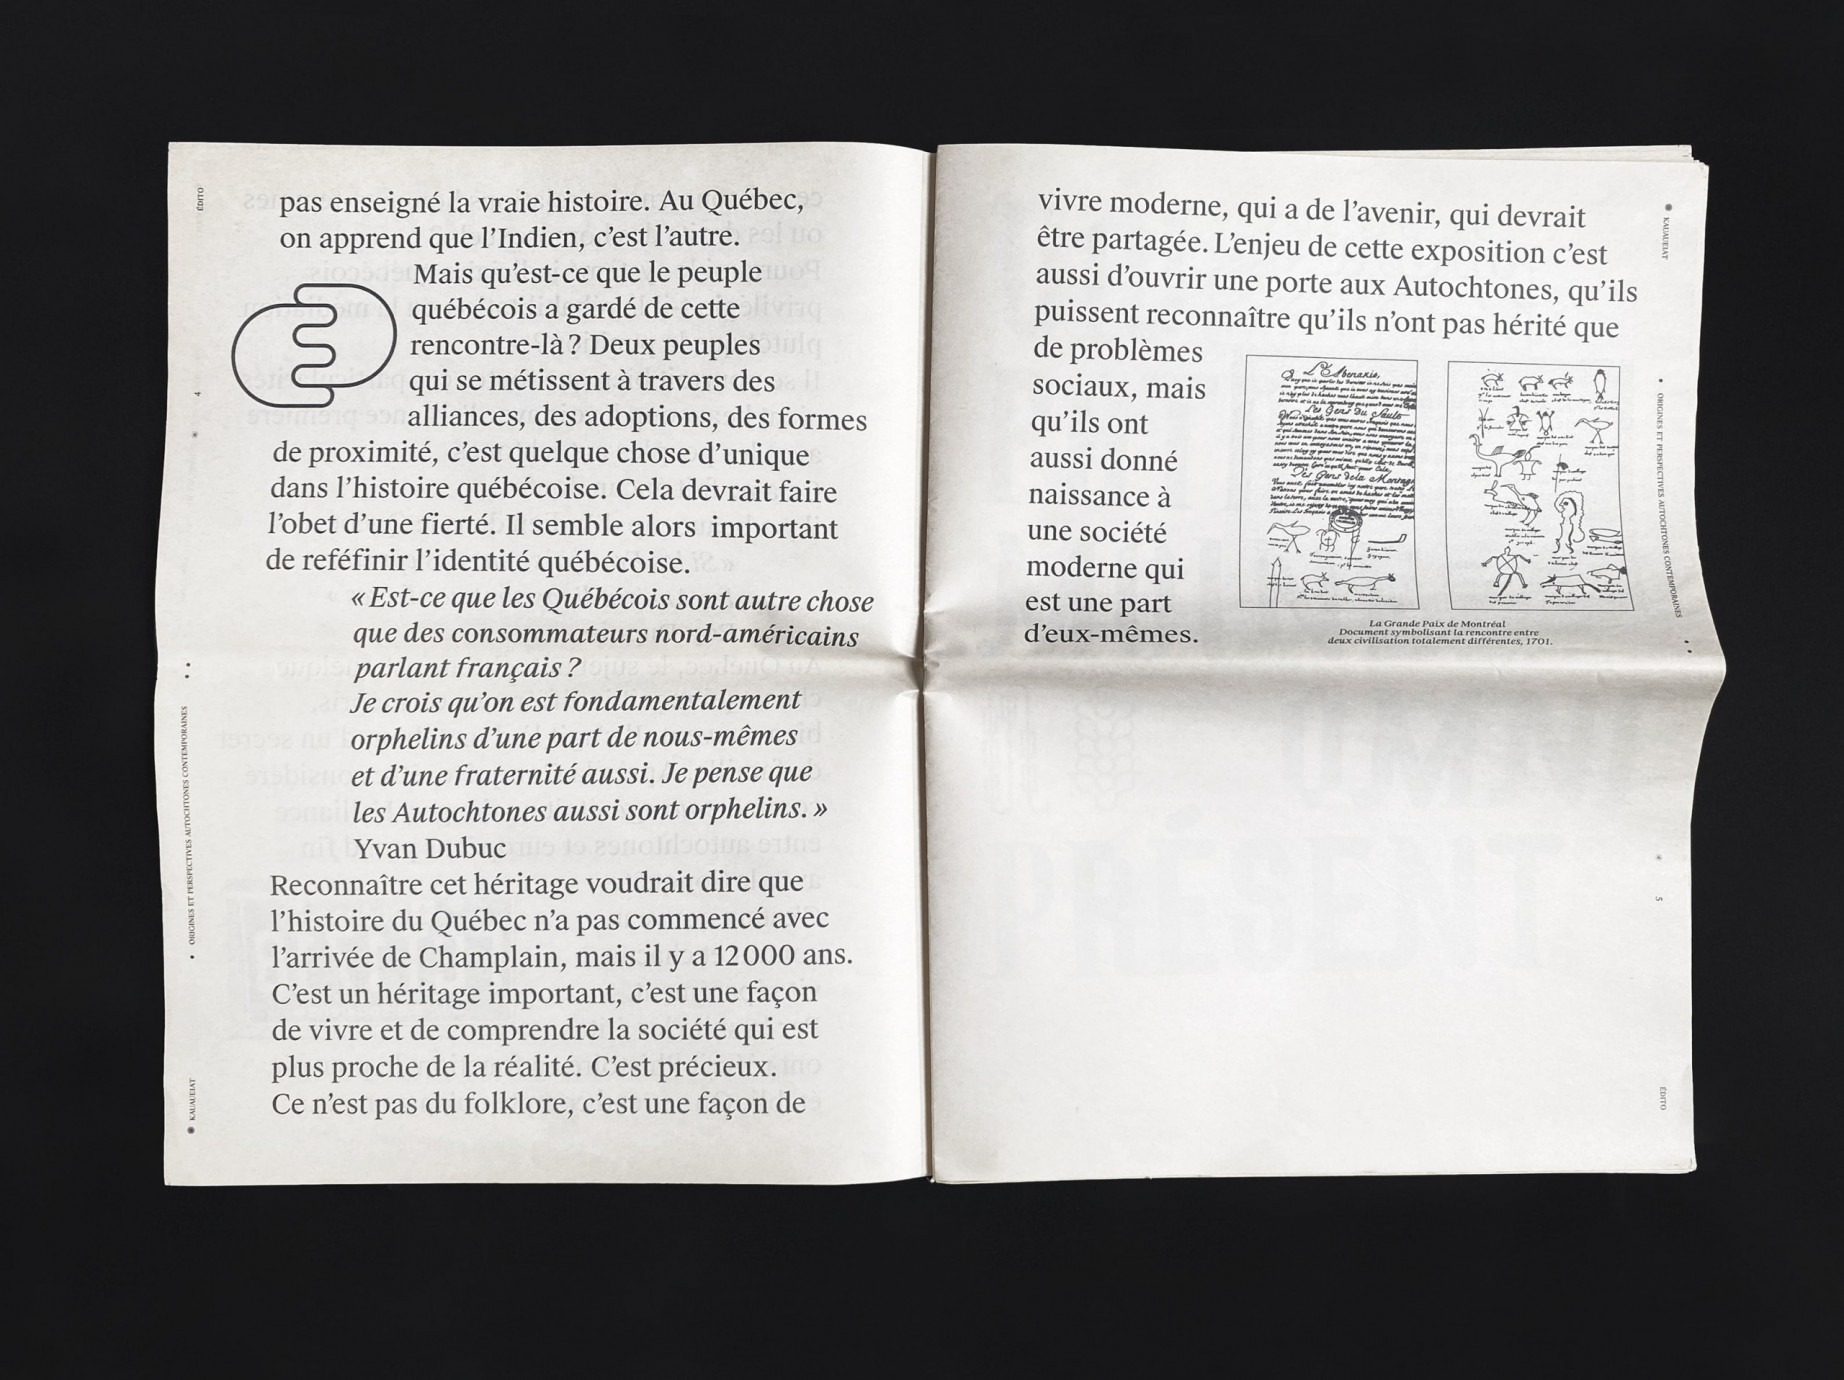 ÉDITO
4
ORIGINES ET PERSPECTIVES AUTOCHTONES CONTEMPORAINES
KAUAUEIAT
pas enseigné la vraie histoire. Au Québec,
on apprend que l’Indien, c’est l’autre.
Mais qu’est-ce que le peuple
québécois a gardé de cette
rencontre-là ? Deux peuples
qui se métissent à travers des
alliances, des adoptions, des formes
de proximité, c’est quelque chose d’unique
dans l’histoire québécoise. Cela devrait faire
l’obet d’une fierté. Il semble alors important
de reféfinir l’identité québécoise.
« Est-ce que les Québécois sont autre chose
que des consommateurs nord-américains
parlant français ?
Je crois qu’on est fondamentalement
orphelins d’une part de nous-mêmes
et d’une fraternité aussi. Je pense que
les Autochtones aussi sont orphelins. »
Yvan Dubuc
Reconnaître cet héritage voudrait dire que
l’histoire du Québec n’a pas commencé avec
l’arrivée de Champlain, mais il y a 12 000 ans.
C’est un héritage important, c’est une façon
de vivre et de comprendre la société qui est
plus proche de la réalité. C’est précieux.
Ce n’est pas du folklore, c’est une façon de
vivre moderne, qui a de l’avenir, qui devrait
être partagée. L’enjeu de cette exposition c’est
aussi d’ouvrir une porte aux Autochtones, qu’ils
puissent reconnaître qu’ils n’ont pas hérité que
de problèmes
sociaux, mais
qu’ils ont
aussi donné
naissance à
une société
moderne qui
est une part
d’eux-mêmes.
Les Gens du Saulte
La Grande Paix de Montréal
Document symbolisant la rencontre entre
deux civilisation totalement différentes, 1701.
KAUAUEIAT
ORIGINES ET PERSPECTIVES AUTOCHTONES CONTEMPORAINES
5
ÉDITO